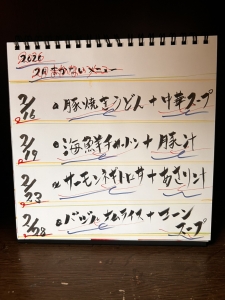 2026
2月まかないメニュー
2/16 ○豚焼きうどん+中華スープ
2/19 ○海鮮チャーハン+豚汁
2/23 ○サーモンネギトロ丼+あさり汁
2/28 ○オムライス+コーン
スープ